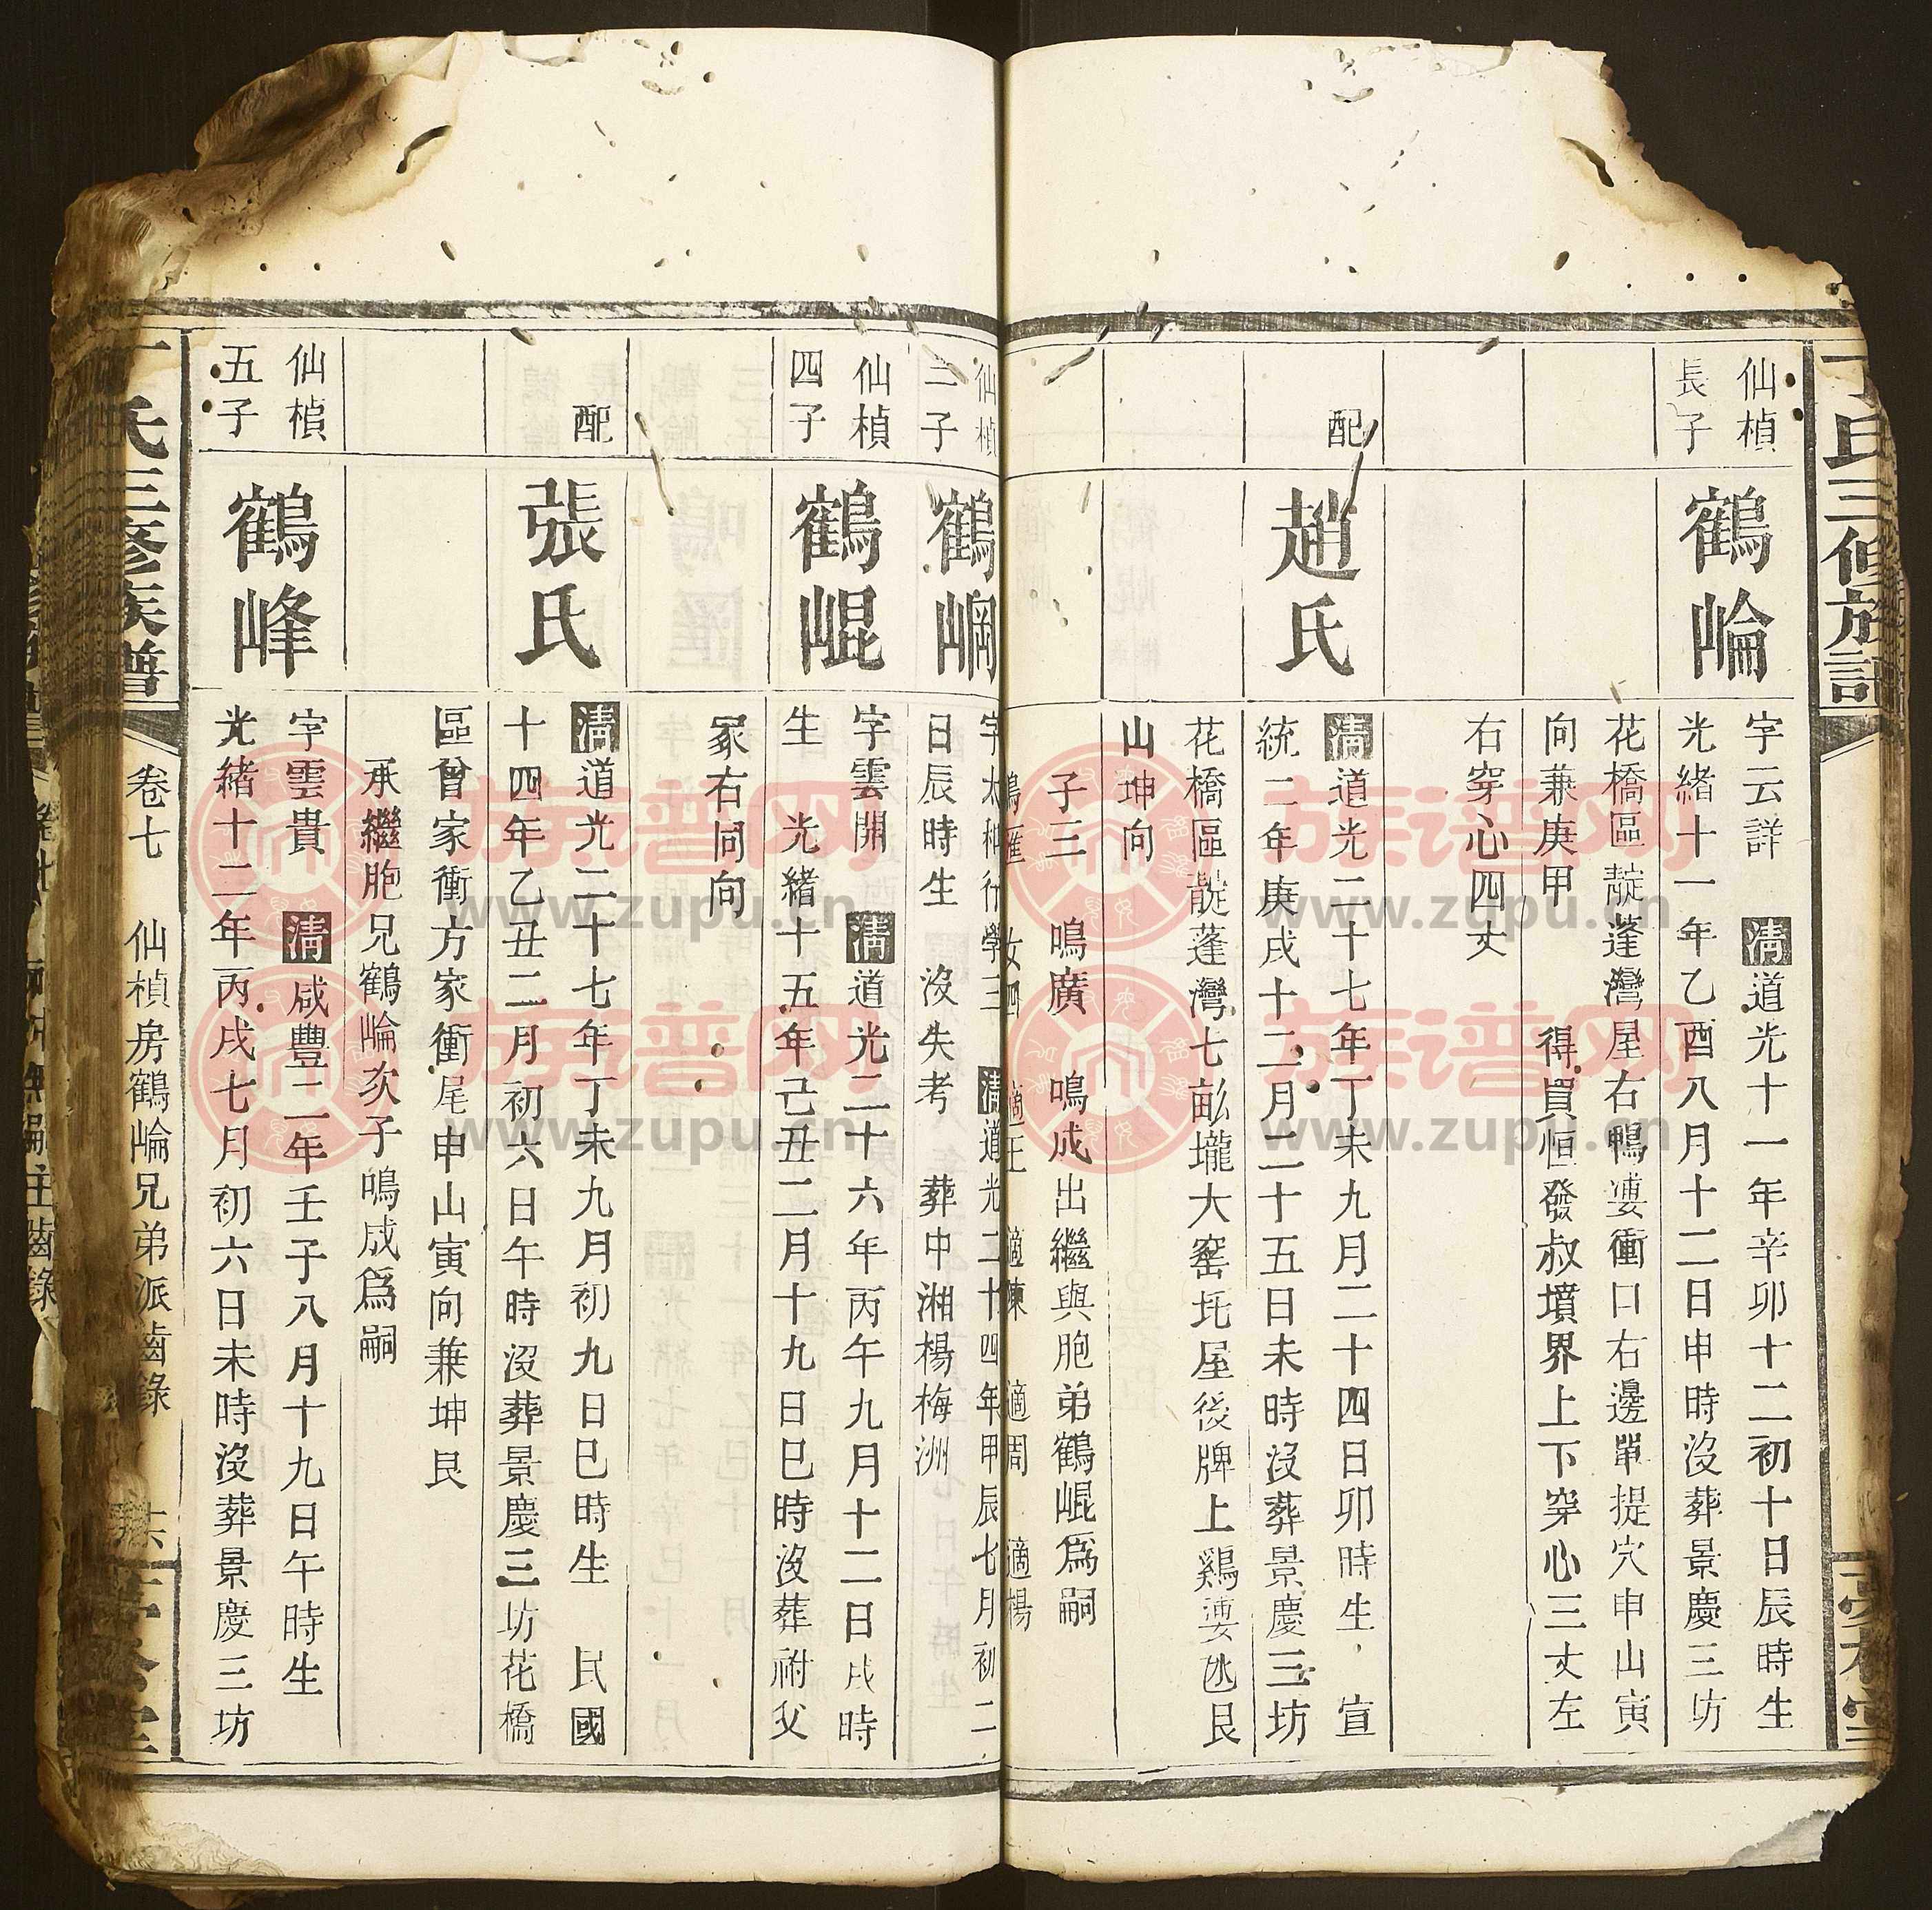 丁氏三修族譜
仙楨
長子
鶴崘
字云詳 清道光十一年辛卯十二初十日辰時生
光緒十一年乙酉八月十二日申時沒葬景慶三坊
花橋區靛蓬灣屋右鴨婆衝口右邊單提穴申山寅
向兼庚甲 得買恒發叔墳界上下穿心三丈左
右穿心四丈
配
趙氏
清道光二十七年丁未九月二十四日卯時生 宣
統二年庚戌十二月二十五日未時沒葬景慶三坊
花橋區靛蓬灣七畝壠大窑坉屋後牌上鷄婆凼艮
山坤向
子三 鳴廣 鳴成出繼與胞弟鶴崐爲嗣
鳴 女四 適王 適陳 適周 適楊
仙楨
三子
鶴崗
字太和行學三 清道光二十四年甲辰七月初二
日辰時生 沒失考 葬中湘楊梅洲
仙楨
四子
鶴崐
字雲開 清道光二十六年丙午九月十二日戌時
生 光緒十五年己丑二月十九日巳時沒葬祔父
冢右同向
配
張氏
清道光二十七年丁未九月初九日巳時生 民國
十四年乙丑二月初六日午時沒葬景慶三坊花橋
區曾家衝方家衝尾申山寅向兼坤艮
承繼胞兄鶴崘次子鳴成爲嗣
仙楨
五子
鶴峰
字雲貴 清咸豐二年壬子八月十九日午時生
光緒十二年丙戌七月初六日未時沒葬景慶三坊
氏三修族譜
卷七 仙楨房鶴崘兄弟派齒錄
族谱网
www.zupu.cn
族谱网
www.zupu.cn
族谱网
www.zupu.cn
族谱网
www.zupu.cn